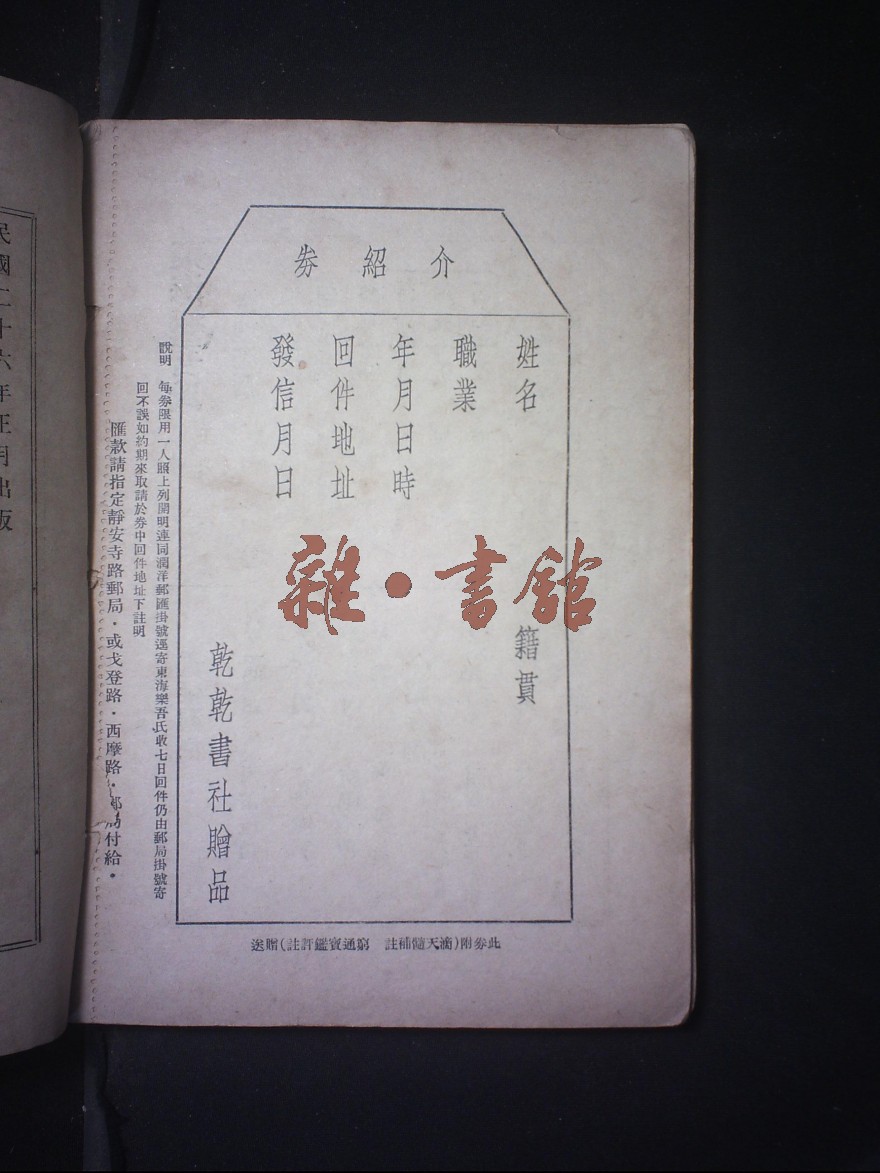 介紹券
姓名 籍貫
職業
年月日時
回件地址
發信月日
乾乾書社贈品
此券附（滴天髓補註　窮通寶鑑評註）贈送
說明　每券限用一人照上列開明連同潤洋郵匯掛號逕寄東海樂吾氏收七日回件仍由郵局掛號寄
回不誤如約期來取請於券中回件地址下註明
匯款請指定靜安寺路郵局・或戈登路・西摩路・郵局付給・
雜・書舘
民國二十六年正月出版